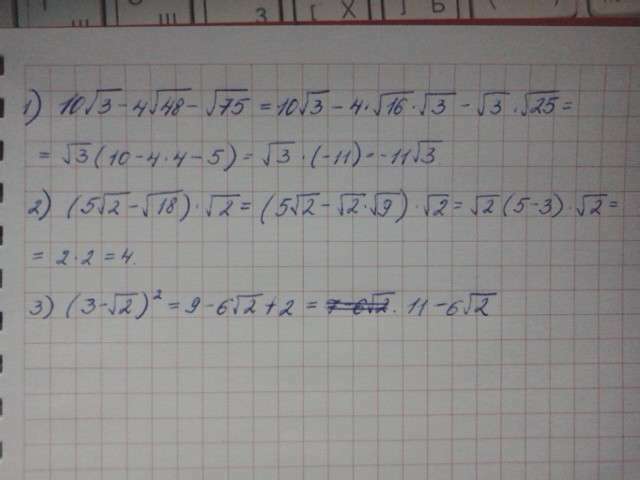 Ш Ш З [ Х ] Ъ
1) 10√3 - 4√48 - √75 = 10√3 - 4·√16·√3 - √3·√25 =
= √3(10 - 4·4 - 5) = √3·(-11) = -11√3
2) (5√2 - √18)·√2 = (5√2 - √2·√9)·√2 = √2(5-3)·√2 =
= 2·2 = 4.
3) (3-√2)² = 9 - 6√2 + 2 = 7-6√2. 11 - 6√2